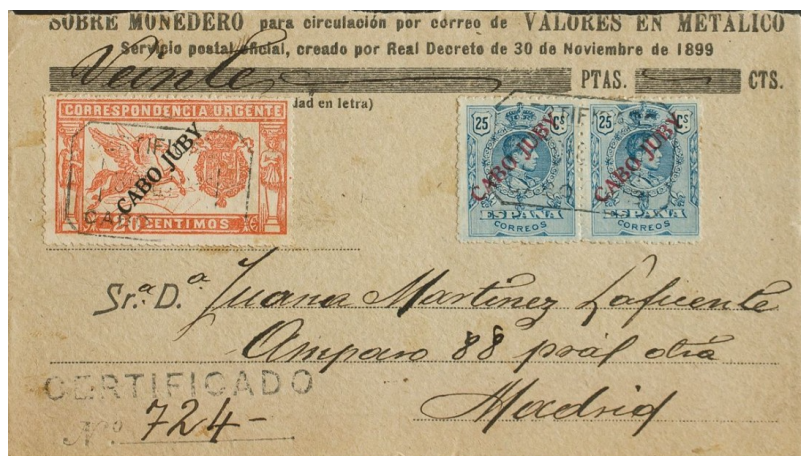 SOBRE MONEDERO para circulación por correo de VALORES EN METÁLICO
Servicio postal oficial, creado por Real Decreto de 30 de Noviembre de 1899
Veinte PTAS. CTS.
dad en letra)
CORRESPONDENCIA URGENTE
CABO JUBY
20 CENTIMOS
25 Cs
CABO JUBY
ESPAÑA
CORREOS
25 Cs
CABO JUBY
ESPAÑA
CORREOS
Sr.ª D.ª Juana Martinez Lafuente
Amparo 88 pral dha
Madrid
CERTIFICADO
Nº 724-